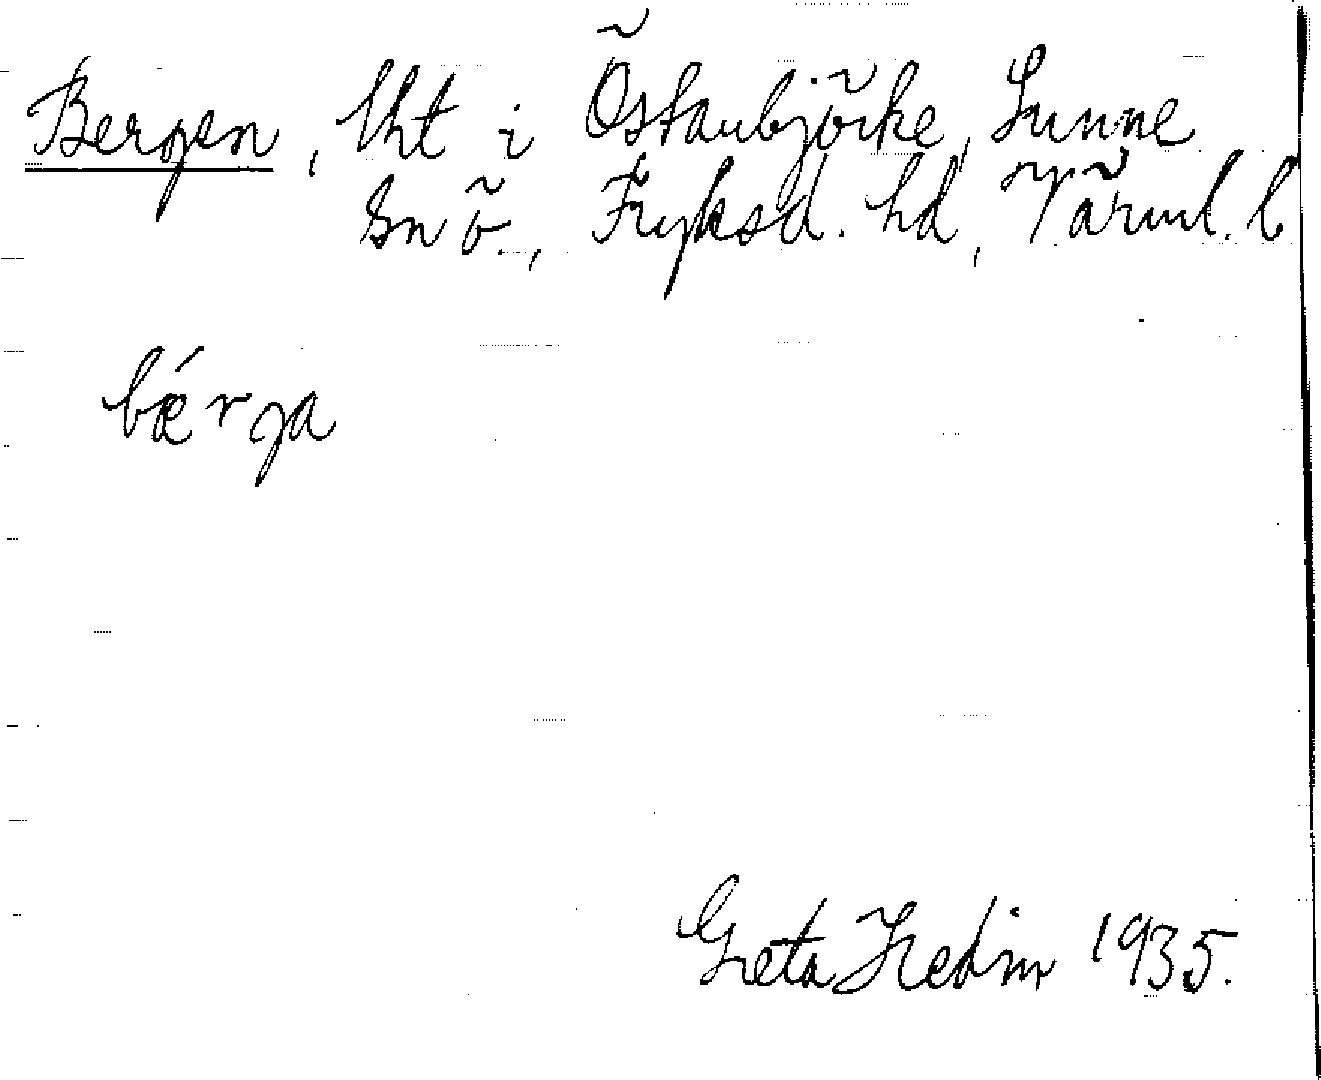 Bergen, lht i Östanbjörke, Sunne
sn ö., Fryksd. hd, Värml. l
bǽrja
Greta Hedin 1935.